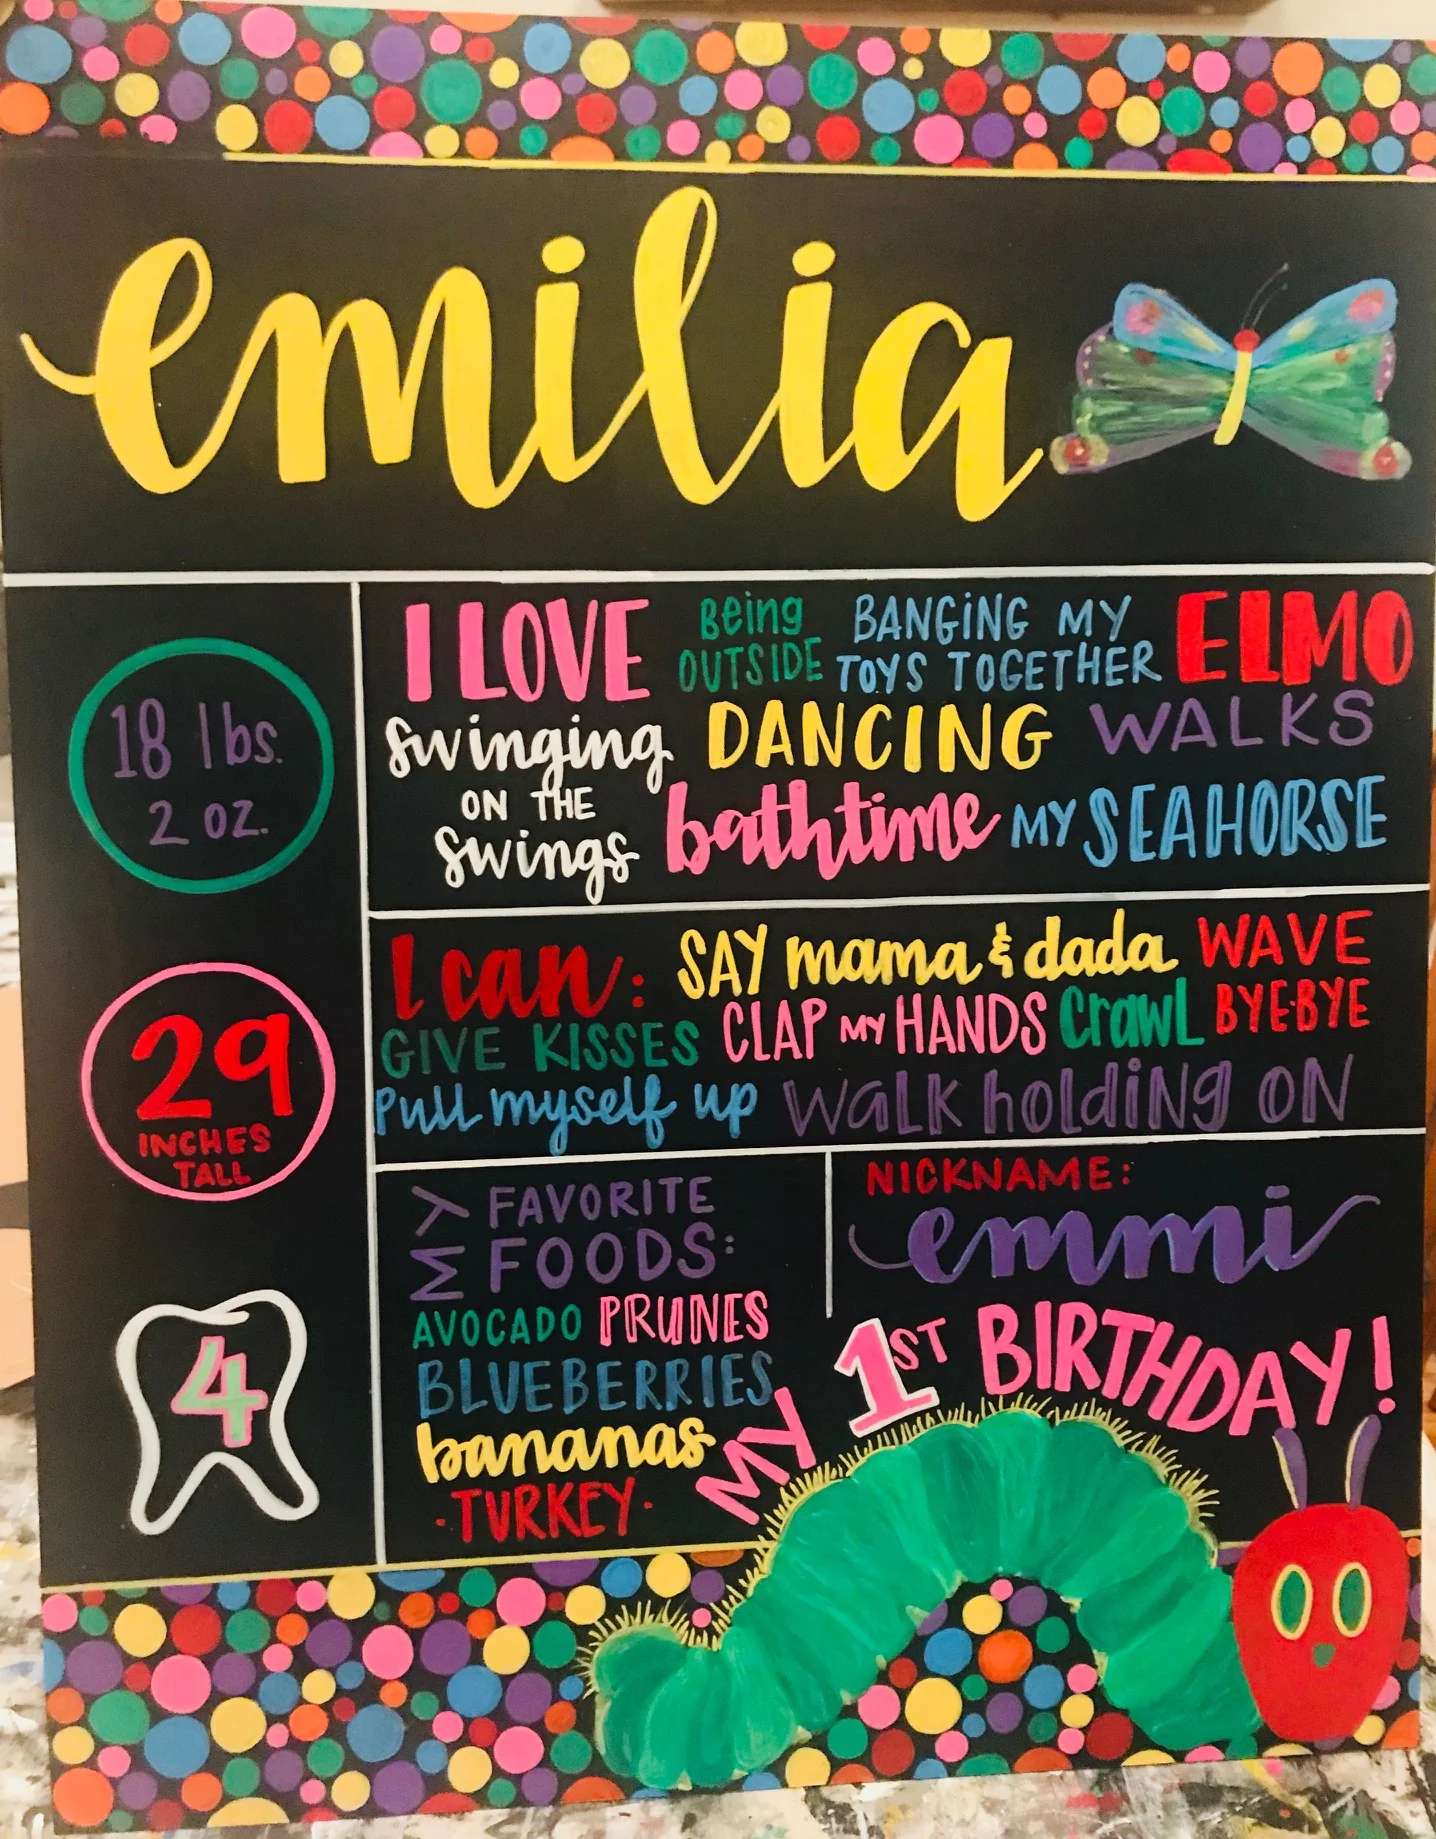 emilia
18 lbs.
2 oz.
29
INCHES
TALL
4
I LOVE Being OUTSIDE BANGING MY TOYS TOGETHER ELMO
swinging ON THE swings DANCING WALKS
bathtime MY SEAHORSE
I can: SAY mama & dada WAVE BYE-BYE
GIVE KISSES CLAP MY HANDS Crawl
Pull myself up Walk holding ON
MY FAVORITE
FOODS:
AVOCADO PRUNES
BLUEBERRIES
bananas
·TURKEY·
NICKNAME:
emmi
MY 1ST BIRTHDAY!